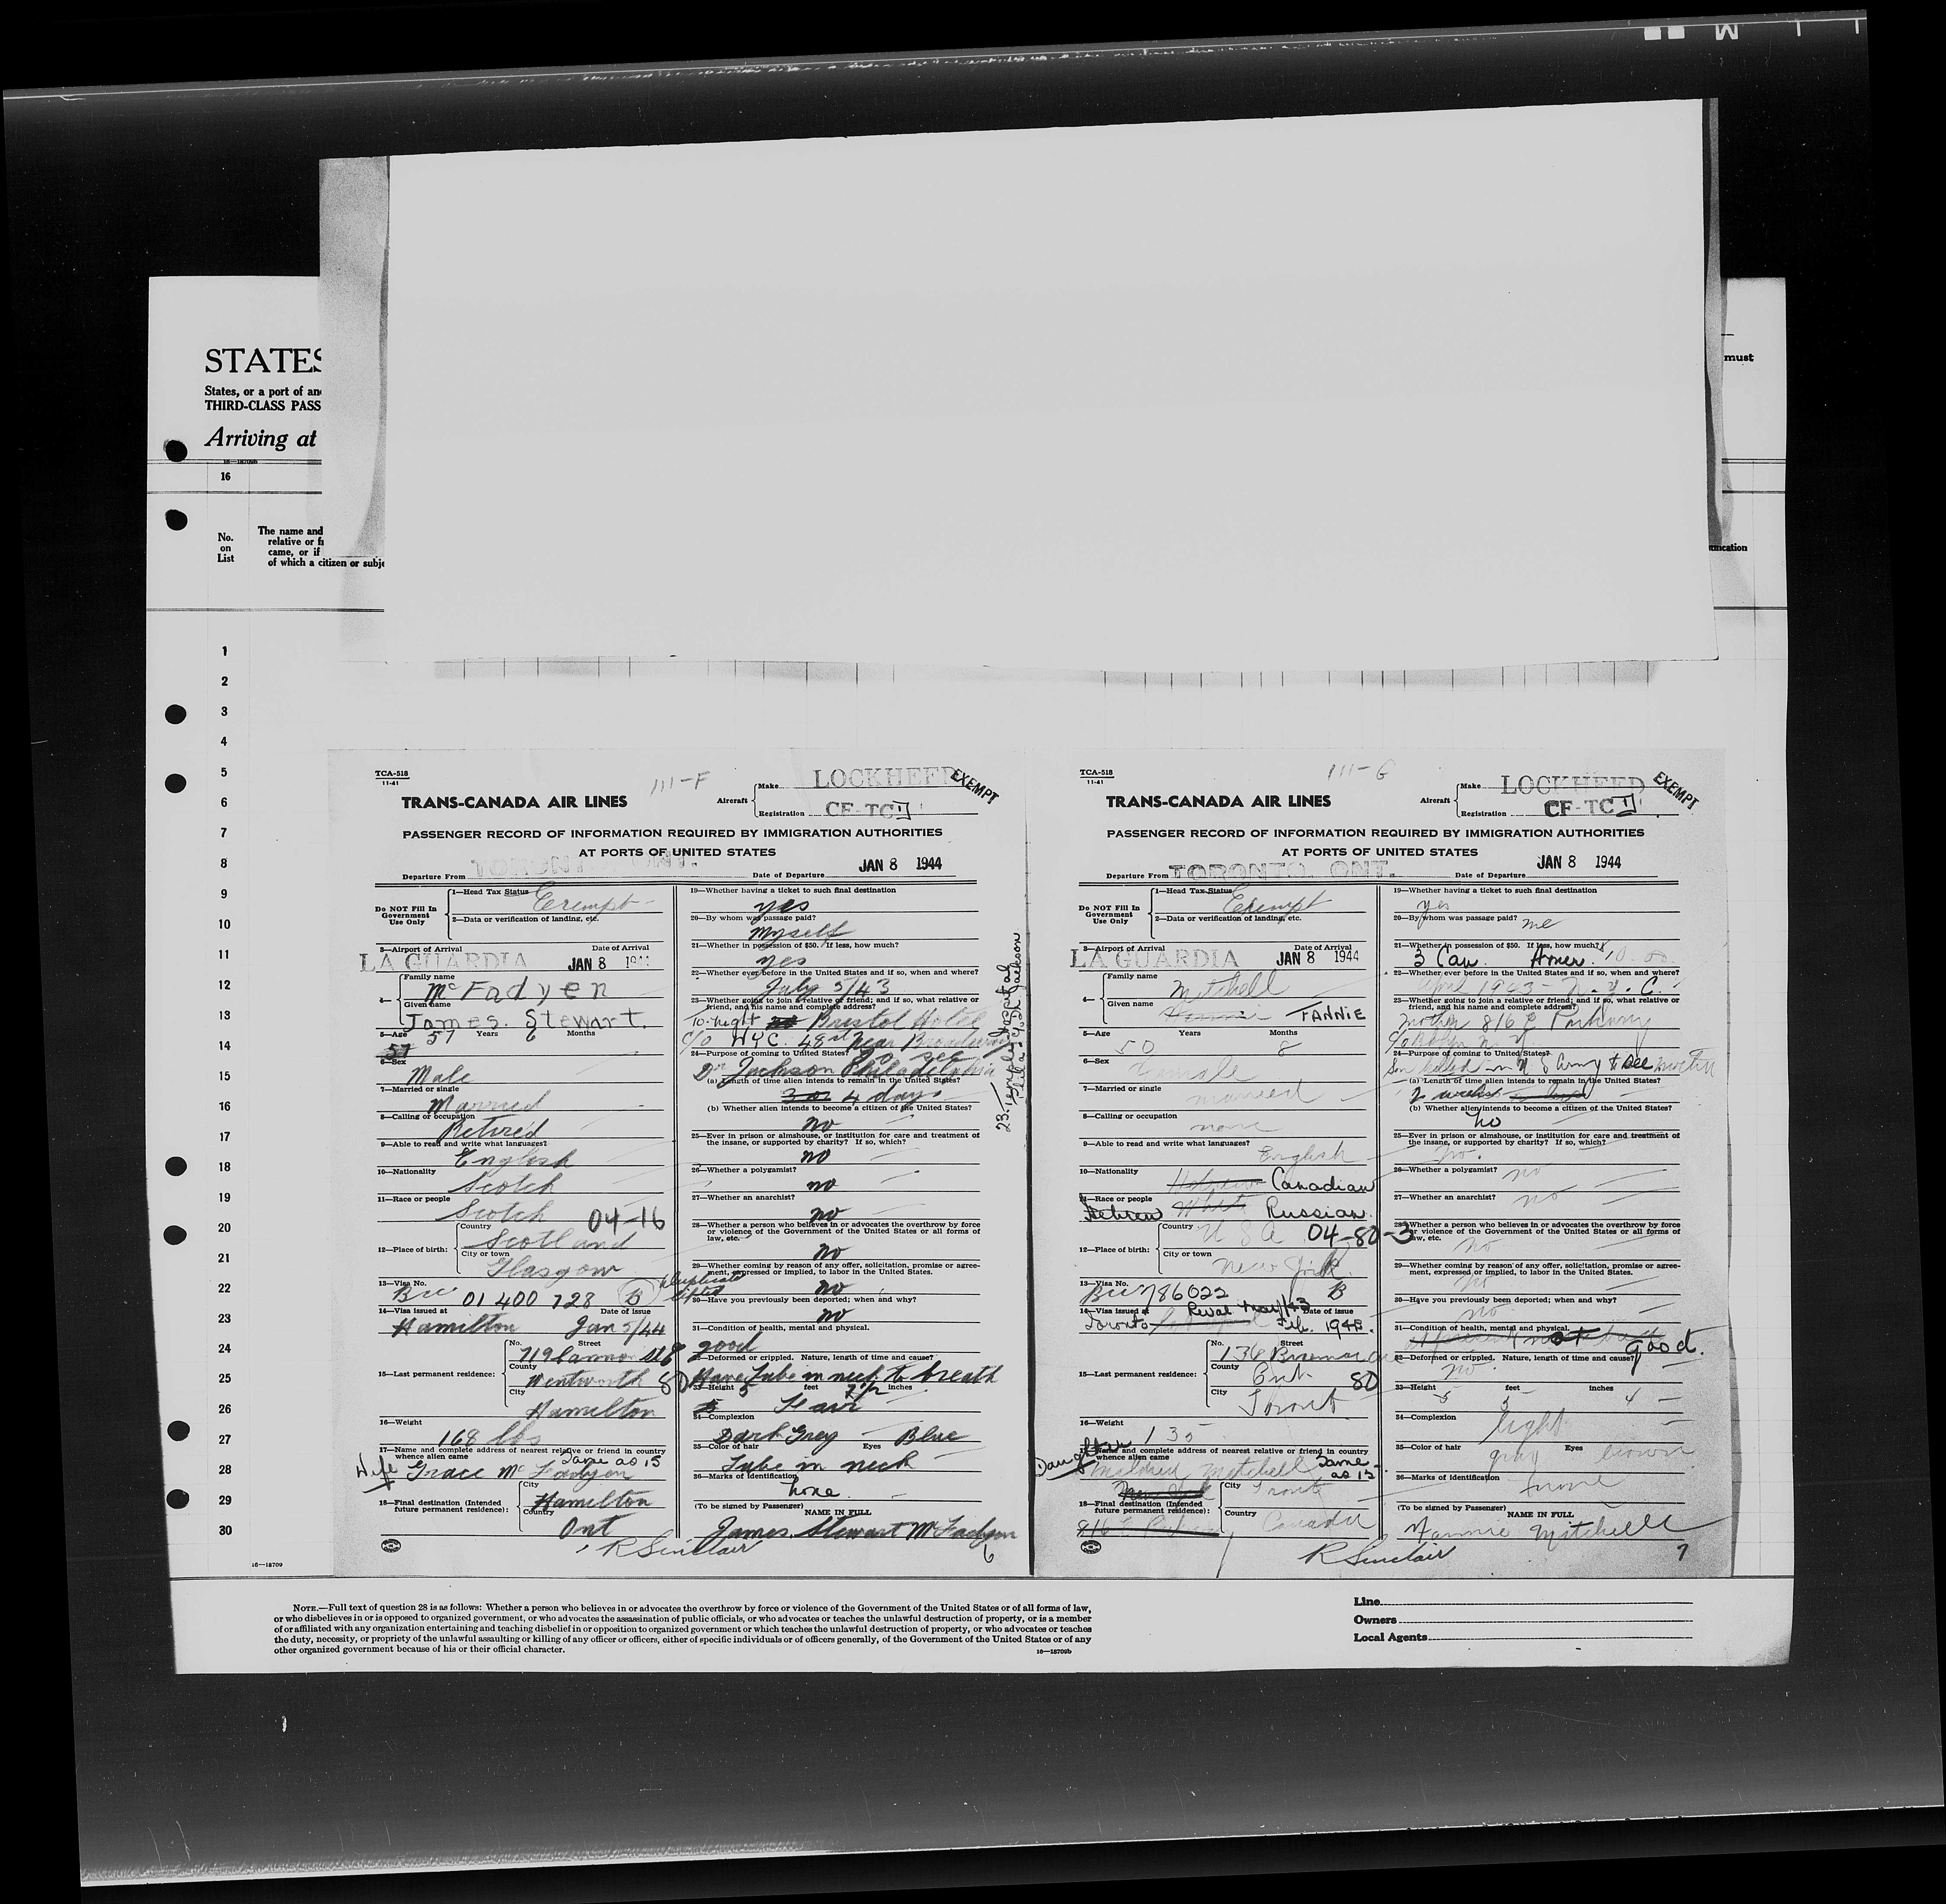 STATES
States, or a port of an
THIRD-CLASS PASS
Arriving at
must
16
No.
on
List
The name and
relative or f
came, or if
of which a citizen or subje
1
2
3
4
5
6
7
8
9
10
11
12
13
14
15
16
17
18
19
20
21
22
23
24
25
26
27
28
29
30
TCA-518
11-41
111-F
TRANS-CANADA AIR LINES
Aircraft
Make LOCKHEED
Registration CF-TC
EXEMPT
PASSENGER RECORD OF INFORMATION REQUIRED BY IMMIGRATION AUTHORITIES
AT PORTS OF UNITED STATES
Departure From TORONTO, ONT.
Date of Departure JAN 8 1944
Do NOT Fill In
Government
Use Only
1—Head Tax Status Exempt
2—Data or verification of landing, etc.
3—Airport of Arrival
Date of Arrival
LA GUARDIA JAN 8 1944
4—
Family name
McFadyen
Given name
James. Stewart.
5—Age 57 Years 6 Months
57
6—Sex
Male
7—Married or single
Married
8—Calling or occupation
Retired
9—Able to read and write what languages?
English
10—Nationality
Scotch
11—Race or people
Scotch 04-16
12—Place of birth:
Country
Scotland
City or town
Glasgow
13—Visa No.
01 400 728 B
14—Visa issued at
Date of issue
Hamilton Jan 5/44
15—Last permanent residence:
No. Street
719 Cannon St E
County
Wentworth 80
City
Hamilton
16—Weight
168 lbs
17—Name and complete address of nearest relative or friend in country
whence alien came Same as 15
Wife Grace McFadyen
18—Final destination (Intended
future permanent residence):
City
Hamilton
Country
Ont
R Sinclair
19—Whether having a ticket to such final destination
yes
20—By whom was passage paid?
Myself
21—Whether in possession of $50. If less, how much?
yes
22—Whether ever before in the United States and if so, when and where?
July 5/43
23—Whether going to join a relative or friend; and if so, what relative or
friend, and his name and complete address?
Bristol Hotel
c/o N.Y.C. 48 st Near Broadway
24—Purpose of coming to United States? To see
Dr Jackson Philadelphia
(a) Length of time alien intends to remain in the United States?
3 or 4 days
(b) Whether alien intends to become a citizen of the United States?
no
25—Ever in prison or almshouse, or institution for care and treatment of
the insane, or supported by charity? If so, which?
no
26—Whether a polygamist?
no
27—Whether an anarchist?
no
28—Whether a person who believes in or advocates the overthrow by force
or violence of the Government of the United States or all forms of
law, etc.
no
29—Whether coming by reason of any offer, solicitation, promise or agree-
ment, expressed or implied, to labor in the United States.
Duplicate
lifted
no
30—Have you previously been deported; when and why?
no
31—Condition of health, mental and physical.
good
32—Deformed or crippled. Nature, length of time and cause?
Have Tube in neck to breath
33—Height 5 feet 7 1/2 inches
Fair
34—Complexion
Dark Grey Blue
35—Color of hair Eyes
Tube in neck
36—Marks of identification
none
(To be signed by Passenger) NAME IN FULL
James. Stewart McFadyen
6
TCA-518
11-41
111-G
TRANS-CANADA AIR LINES
Aircraft
Make LOCKHEED
Registration CF-TC
EXEMPT
PASSENGER RECORD OF INFORMATION REQUIRED BY IMMIGRATION AUTHORITIES
AT PORTS OF UNITED STATES
Departure From TORONTO, ONT.
Date of Departure JAN 8 1944
Do NOT Fill In
Government
Use Only
1—Head Tax Status Exempt
2—Data or verification of landing, etc.
3—Airport of Arrival
Date of Arrival
LA GUARDIA JAN 8 1944
4—
Family name
Mitchell
Given name
FANNIE
5—Age Years Months
50 8
6—Sex
Female
7—Married or single
married
8—Calling or occupation
none
9—Able to read and write what languages?
English
10—Nationality
Hebrew Canadian
11—Race or people
Hebrew White Russian.
12—Place of birth:
Country
U S A 04-80-3
City or town
New York
13—Visa No.
786022 B
14—Visa issued at
Date of issue
Toronto Feb. 1943.
15—Last permanent residence:
No. Street
136
County
Ont. 80
City
Toronto
16—Weight
135
Daughter
17—Name and complete address of nearest relative or friend in country
whence alien came Same
Mildred Mitchell as 15
18—Final destination (Intended
future permanent residence):
City
Toronto
Country
Canada
R Sinclair
19—Whether having a ticket to such final destination
yes
20—By whom was passage paid? me
21—Whether in possession of $50. If less, how much?
3 Can. Amer. 10.00
22—Whether ever before in the United States and if so, when and where?
N. Y. C.
23—Whether going to join a relative or friend; and if so, what relative or
friend, and his name and complete address?
Mother 816 E Parkway
24—Purpose of coming to United States?
Son killed in U S Army to see mother
(a) Length of time alien intends to remain in the United States?
2 weeks
(b) Whether alien intends to become a citizen of the United States?
no
25—Ever in prison or almshouse, or institution for care and treatment of
the insane, or supported by charity? If so, which?
no.
26—Whether a polygamist? no
27—Whether an anarchist? no
28—Whether a person who believes in or advocates the overthrow by force
or violence of the Government of the United States or all forms of
law, etc.
no
29—Whether coming by reason of any offer, solicitation, promise or agree-
ment, expressed or implied, to labor in the United States.
no
30—Have you previously been deported; when and why?
no.
31—Condition of health, mental and physical.
good.
32—Deformed or crippled. Nature, length of time and cause?
no
33—Height feet inches
5 4
34—Complexion light
35—Color of hair Eyes
gray brown
36—Marks of identification none
(To be signed by Passenger) NAME IN FULL
Fannie Mitchell
7
16—18709
NOTE.—Full text of question 28 is as follows: Whether a person who believes in or advocates the overthrow by force or violence of the Government of the United States or of all forms of law,
or who disbelieves in or is opposed to organized government, or who advocates the assassination of public officials, or who advocates or teaches the unlawful destruction of property, or is a member
of or affiliated with any organization entertaining and teaching disbelief in or opposition to organized government or which teaches the unlawful destruction of property, or who advocates or teaches
the duty, necessity, or propriety of the unlawful assaulting or killing of any officer or officers, either of specific individuals or of officers generally, of the Government of the United States or of any
other organized government because of his or their official character.
16—18709b
Line
Owners
Local Agents